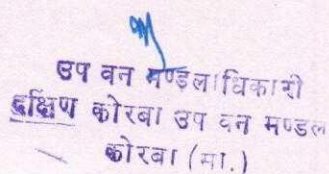 उप वन मण्डलाधिकारी
दक्षिण कोरबा उप वन मण्डल
कोरबा (मा.)